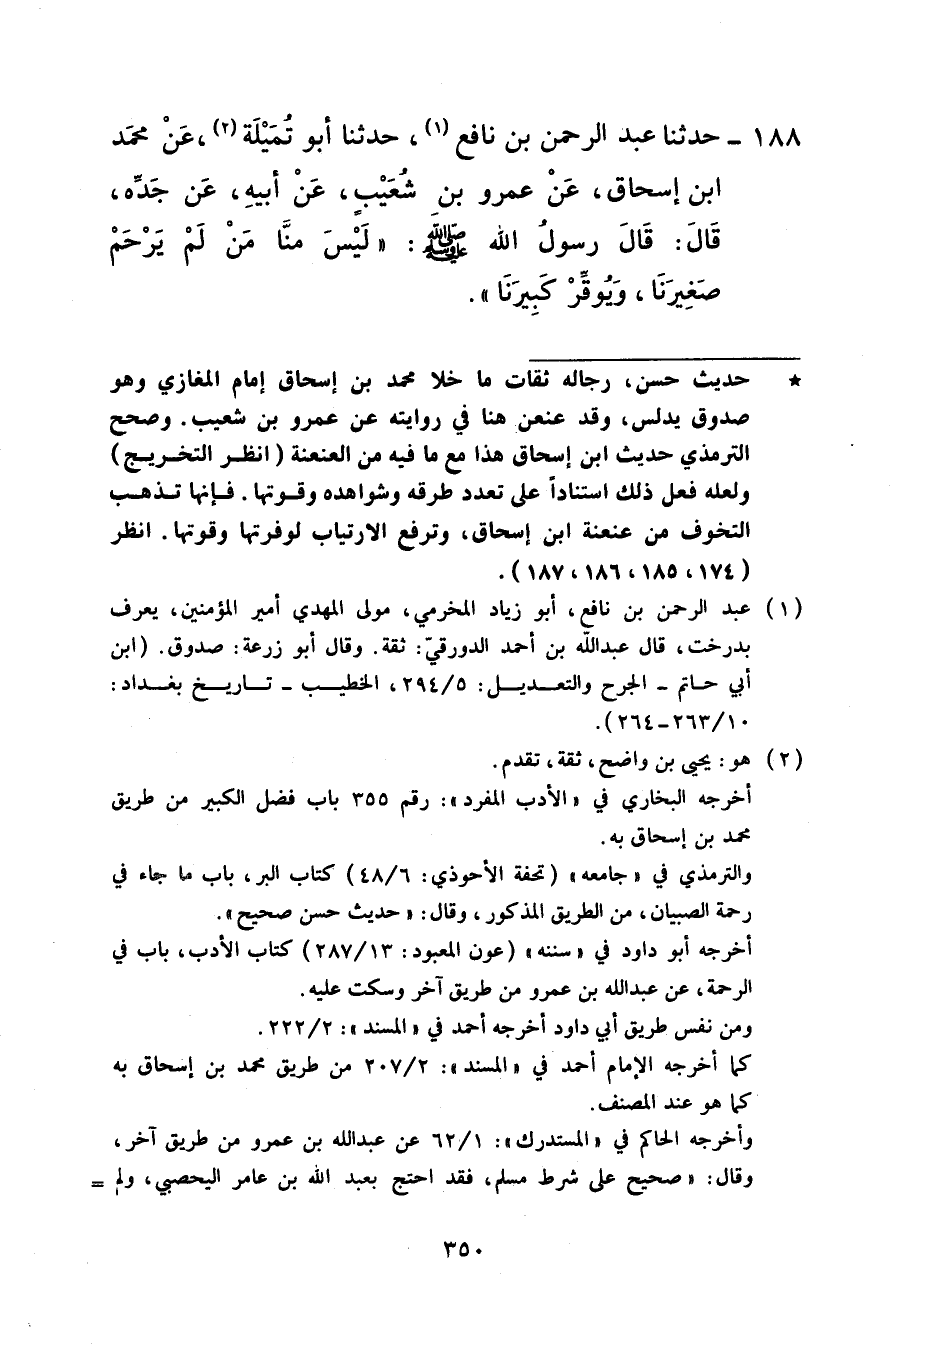 ١٨٨ ـ حدثنا عبد الرحمن بن نافع (١)، حدثنا أبو تُمَيْلَة (٢)، عَنْ محمَد
ابن إسحاق، عَنْ عمرو بنِ شُعَيْبٍ، عَنْ أبيهِ، عَن جَدِّه،
قَالَ: قَالَ رسولُ الله ﷺ: « لَيْسَ منَّا مَنْ لَمْ يَرْحَمْ
صَغِيرَنَا، وَيُوقِّرْ كَبِيرَنَا ».
★ حديث حسن، رجاله ثقات ما خلا محمد بن إسحاق إمام المغازي وهو
صدوق يدلس، وقد عنعن هنا في روايته عن عمرو بن شعيب. وصحح
الترمذي حديث ابن إسحاق هذا مع ما فيه من العنعنة (انظر التخريج)
ولعله فعل ذلك استناداً على تعدد طرقه وشواهده وقوتها. فإنها تذهب
التخوف من عنعنة ابن إسحاق، وترفع الارتياب لوفرتها وقوتها. انظر
(١٧٤، ١٨٥، ١٨٦، ١٨٧).
(١) عبد الرحمن بن نافع، أبو زياد المخرمي، مولى المهدي أمير المؤمنين، يعرف
بدرخت، قال عبدالله بن أحمد الدورقيّ: ثقة. وقال أبو زرعة: صدوق. (ابن
أبي حاتم ـ الجرح والتعديل: ٢٩٤/٥، الخطيب ـ تاريخ بغداد:
٢٦٣/١٠ـ٢٦٤).
(٢) هو: يحيى بن واضح، ثقة، تقدم.
أخرجه البخاري في «الأدب المفرد»: رقم ٣٥٥ باب فضل الكبير من طريق
محمد بن إسحاق به.
والترمذي في «جامعه» (تحفة الأحوذي: ٤٨/٦) كتاب البر، باب ما جاء في
رحمة الصبيان، من الطريق المذكور، وقال: «حديث حسن صحيح».
أخرجه أبو داود في «سننه» (عون المعبود: ٢٨٧/١٣) كتاب الأدب، باب في
الرحمة، عن عبدالله بن عمرو من طريق آخر وسكت عليه.
ومن نفس طريق أبي داود أخرجه أحمد في «المسند»: ٢٢٢/٢.
كما أخرجه الإمام أحمد في «المسند»: ٢٠٧/٢ من طريق محمد بن إسحاق به
كما هو عند المصنف.
وأخرجه الحاكم في «المستدرك»: ٦٢/١ عن عبدالله بن عمرو من طريق آخر،
وقال: «صحيح على شرط مسلم، فقد احتج بعبد الله بن عامر اليحصبي، ولم =
٣٥٠